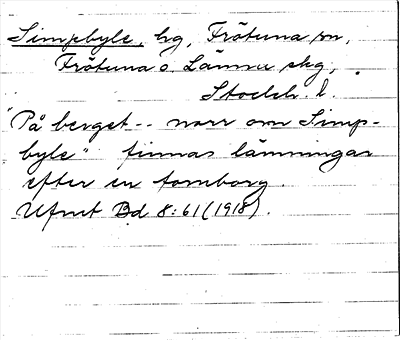 Simpbyle, hg, Frötuna sn,
Frötuna o. Länna skg,
Stockh. l.
"På berget -- norr om Simp-
byle" finnas lämningar
efter en fornborg.
Ufmt Bd 8:61 (1918).